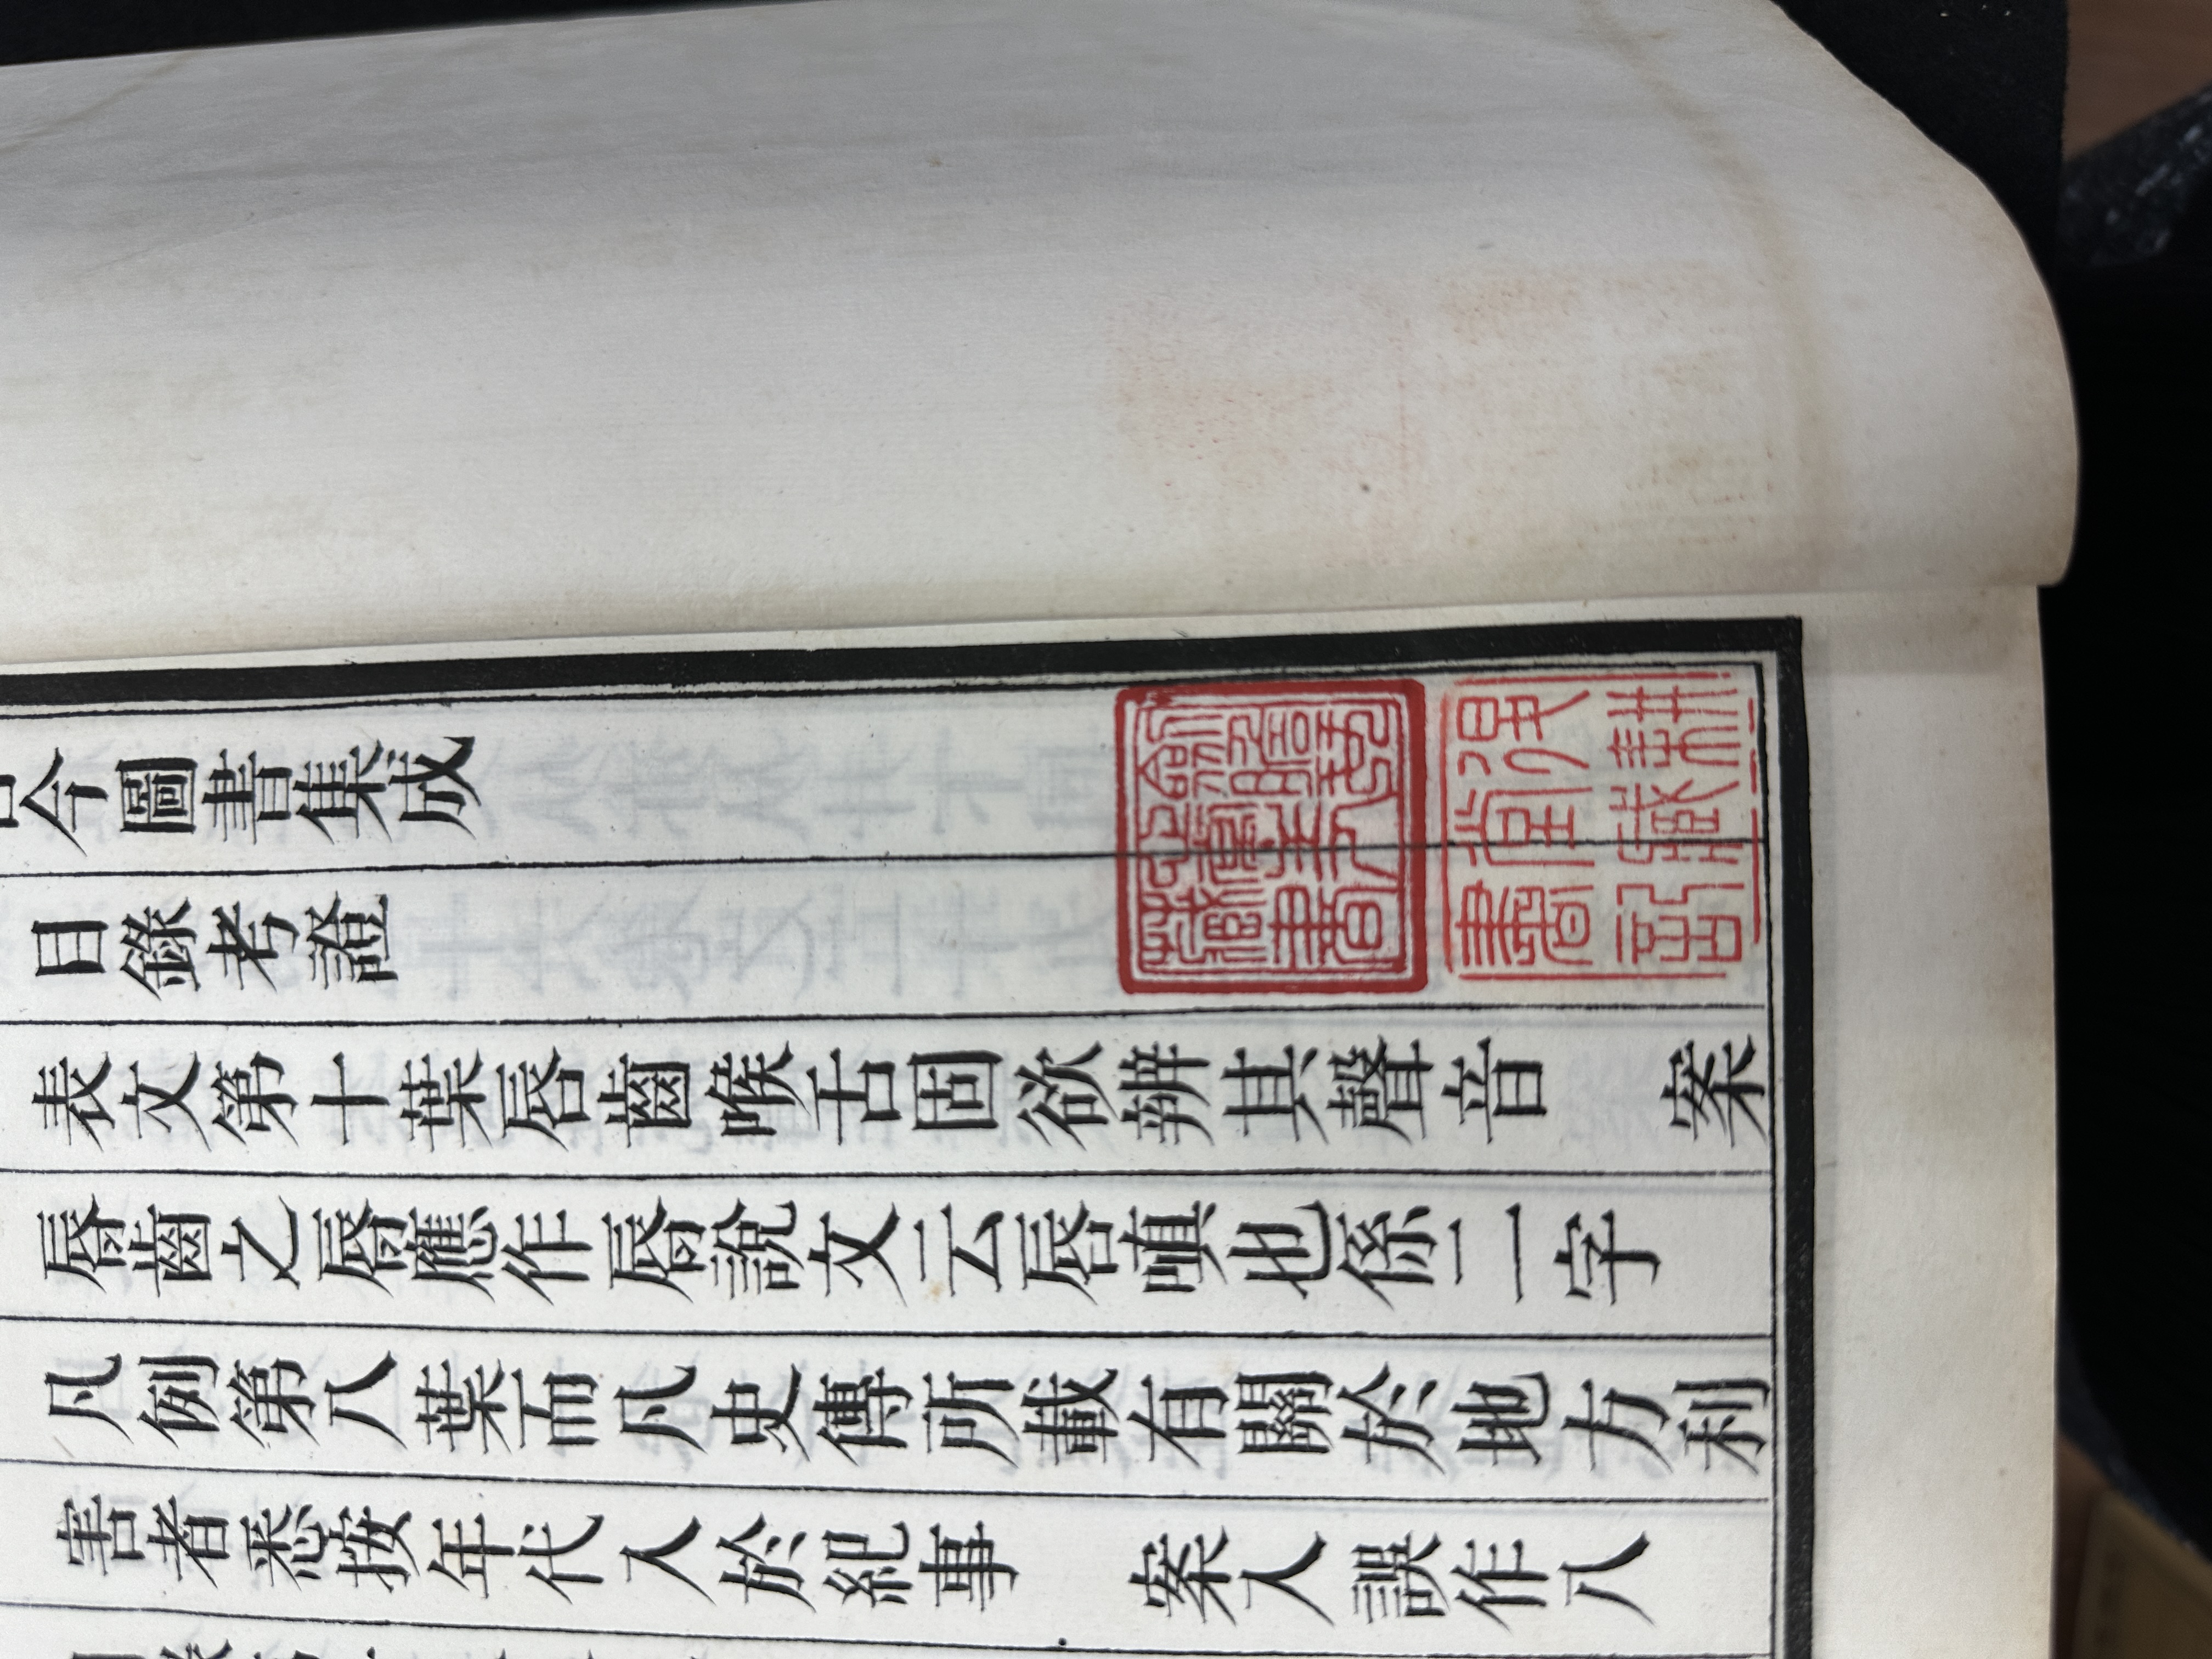 今圖書集成
目錄考證
表文第十葉唇齒喉舌固欲辨其聲音　案
脣齒之脣應作脣說文云唇嗔也係二字
凡例第八葉而凡史傳所載有關於地方利
害者悉按年代入於紀事　案入誤作八